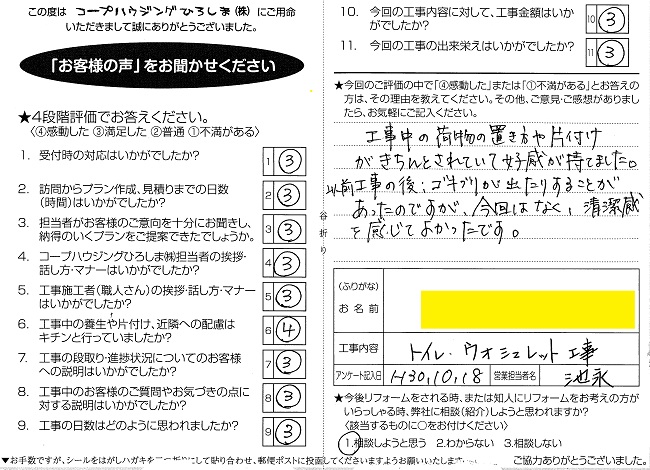 この度は コープハウジングひろしま(株) にご用命
いただきまして誠にありがとうございました。
「お客様の声」をお聞かせください
★4段階評価でお答えください。
〈④感動した ③満足した ②普通 ①不満がある〉
1. 受付時の対応はいかがでしたか? 1 ③
2. 訪問からプラン作成、見積りまでの日数
(時間)はいかがでしたか? 2 ③
3. 担当者がお客様のご意向を十分にお聞きし、
納得のいくプランをご提案できたでしょうか。 3 ③
4. コープハウジングひろしま㈱担当者の挨拶・
話し方・マナーはいかがでしたか? 4 ③
5. 工事施工者(職人さん)の挨拶・話し方・マナー
はいかがでしたか? 5 ③
6. 工事中の養生や片付け、近隣への配慮は
キチンと行っていましたか? 6 ④
7. 工事の段取り・進捗状況についてのお客様
への説明はいかがでしたか? 7 ③
8. 工事中のお客様のご質問やお気づきの点に
対する説明はいかがでしたか? 8 ③
9. 工事の日数はどのように思われましたか? 9 ③
谷折り
10. 今回の工事内容に対して、工事金額はいか
がでしたか? 10 ③
11. 今回の工事の出来栄えはいかがでしたか? 11 ③
★今回のご評価の中で「④感動した」または「①不満がある」とお答え
の方は、その理由を教えてください。その他、ご意見・ご感想がありまし
たら、お気軽にご記入ください。
工事中の荷物の置き方や片付け
がきちんとされていて好感が持てました。
以前工事の後、ゴキブリが出たりすることが
あったのですが、今回はなく、清潔感
を感じてよかったです。
(ふりがな)
お名前
工事内容 トイレ・ウォシュレット工事
アンケート記入日 H30.10.18 営業担当者名 池永
★今後リフォームをされる時、または知人にリフォームをお考えの方が
いらっしゃる時、弊社に相談(紹介)しようと思われますか?
〈該当するものに○をお付けください〉
①.相談しようと思う 2.わからない 3.相談しない
▼お手数ですが、シールをはがしハガキを二つ折りにして貼り合わせ、郵便ポストに投函してくださいますようお願いいたします。
ご協力ありがとうございました。